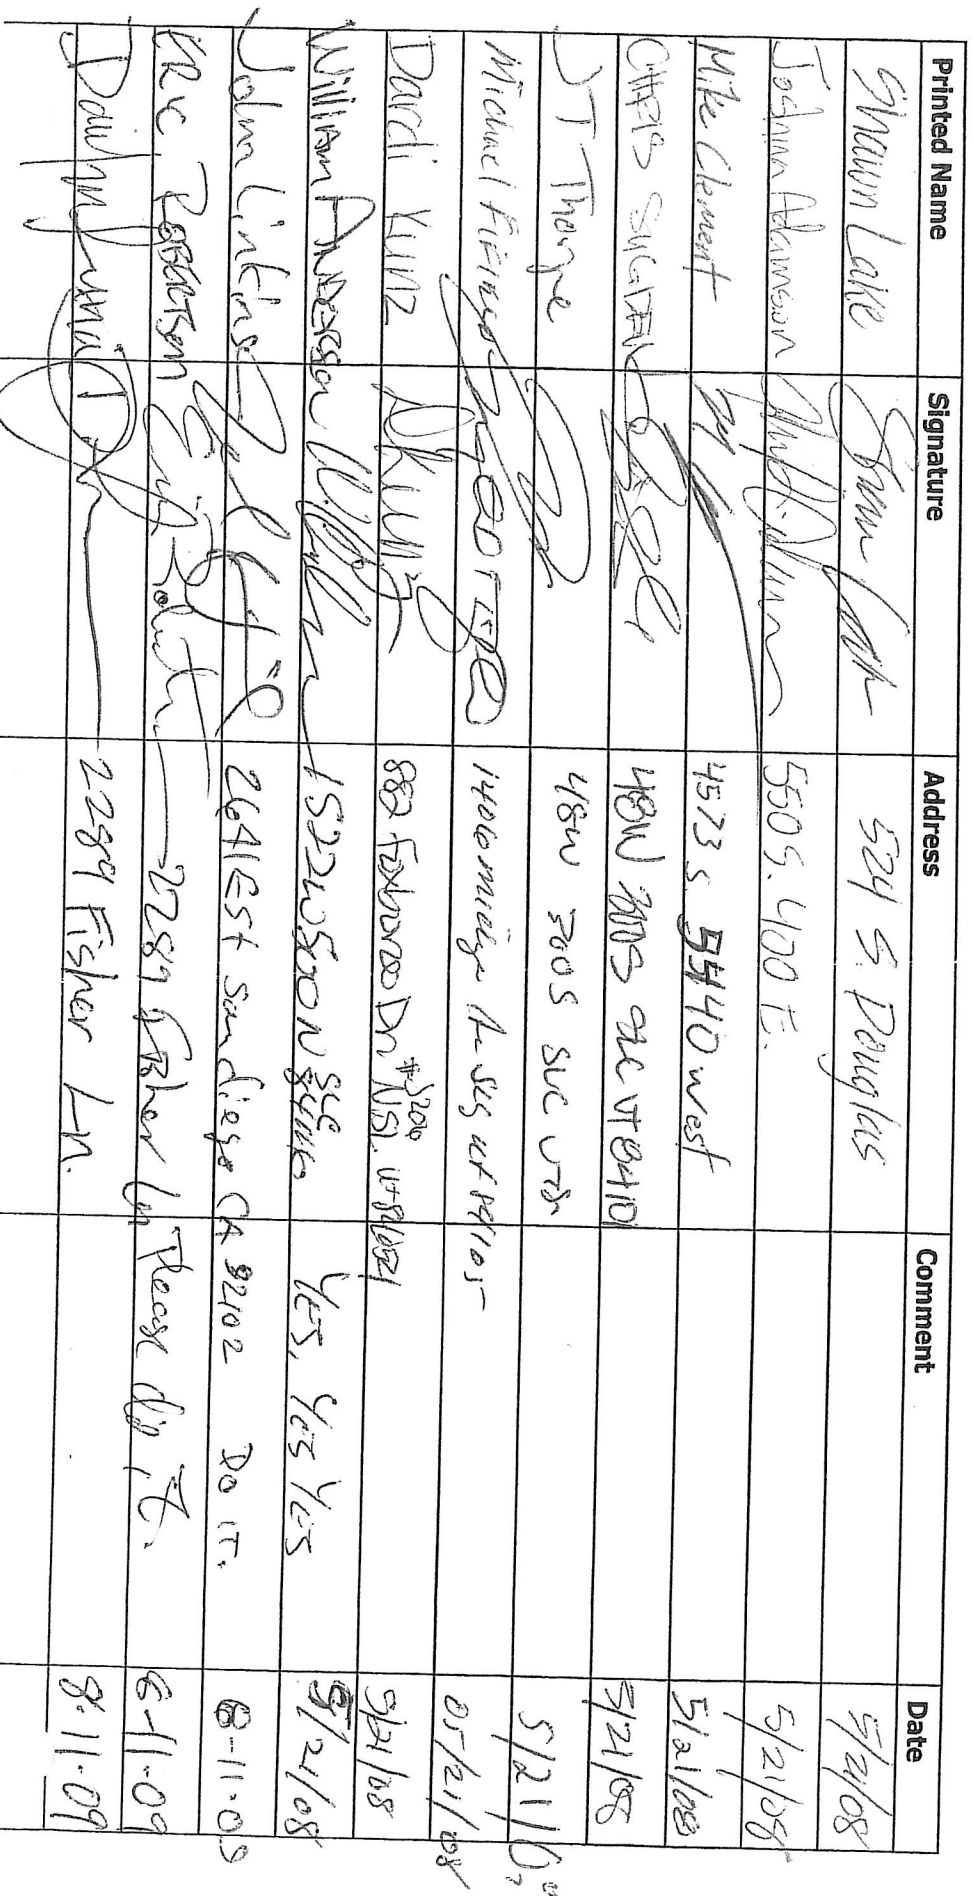 Printed Name Signature Address Comment Date
Shawn Lake 524 S. Douglas 5/21/08
Joshua Adamson 550 S. 400 E. 5/21/08
Mike Clement 4573 S 5540 West 5/21/08
CHRIS 48W 300S SLC UT 84101 5/21/08
JT Thorpe 48W 300S SLC UT 5/21/
Michael 1406 05/21/08
Darci Kunz 882 Foxboro Dr #J206 NSL UT 84054 5/21/08
William ANDERSON 1522 W 500 N SLC 84116 YES, YES YES 5/21/08
John 2641 Est San diego CA 92102 DO IT. 8-11-09
Eric ROBERTSON 2289 Fisher Ln Please do it. 8-11-09
2289 Fisher Ln. 8-11-09